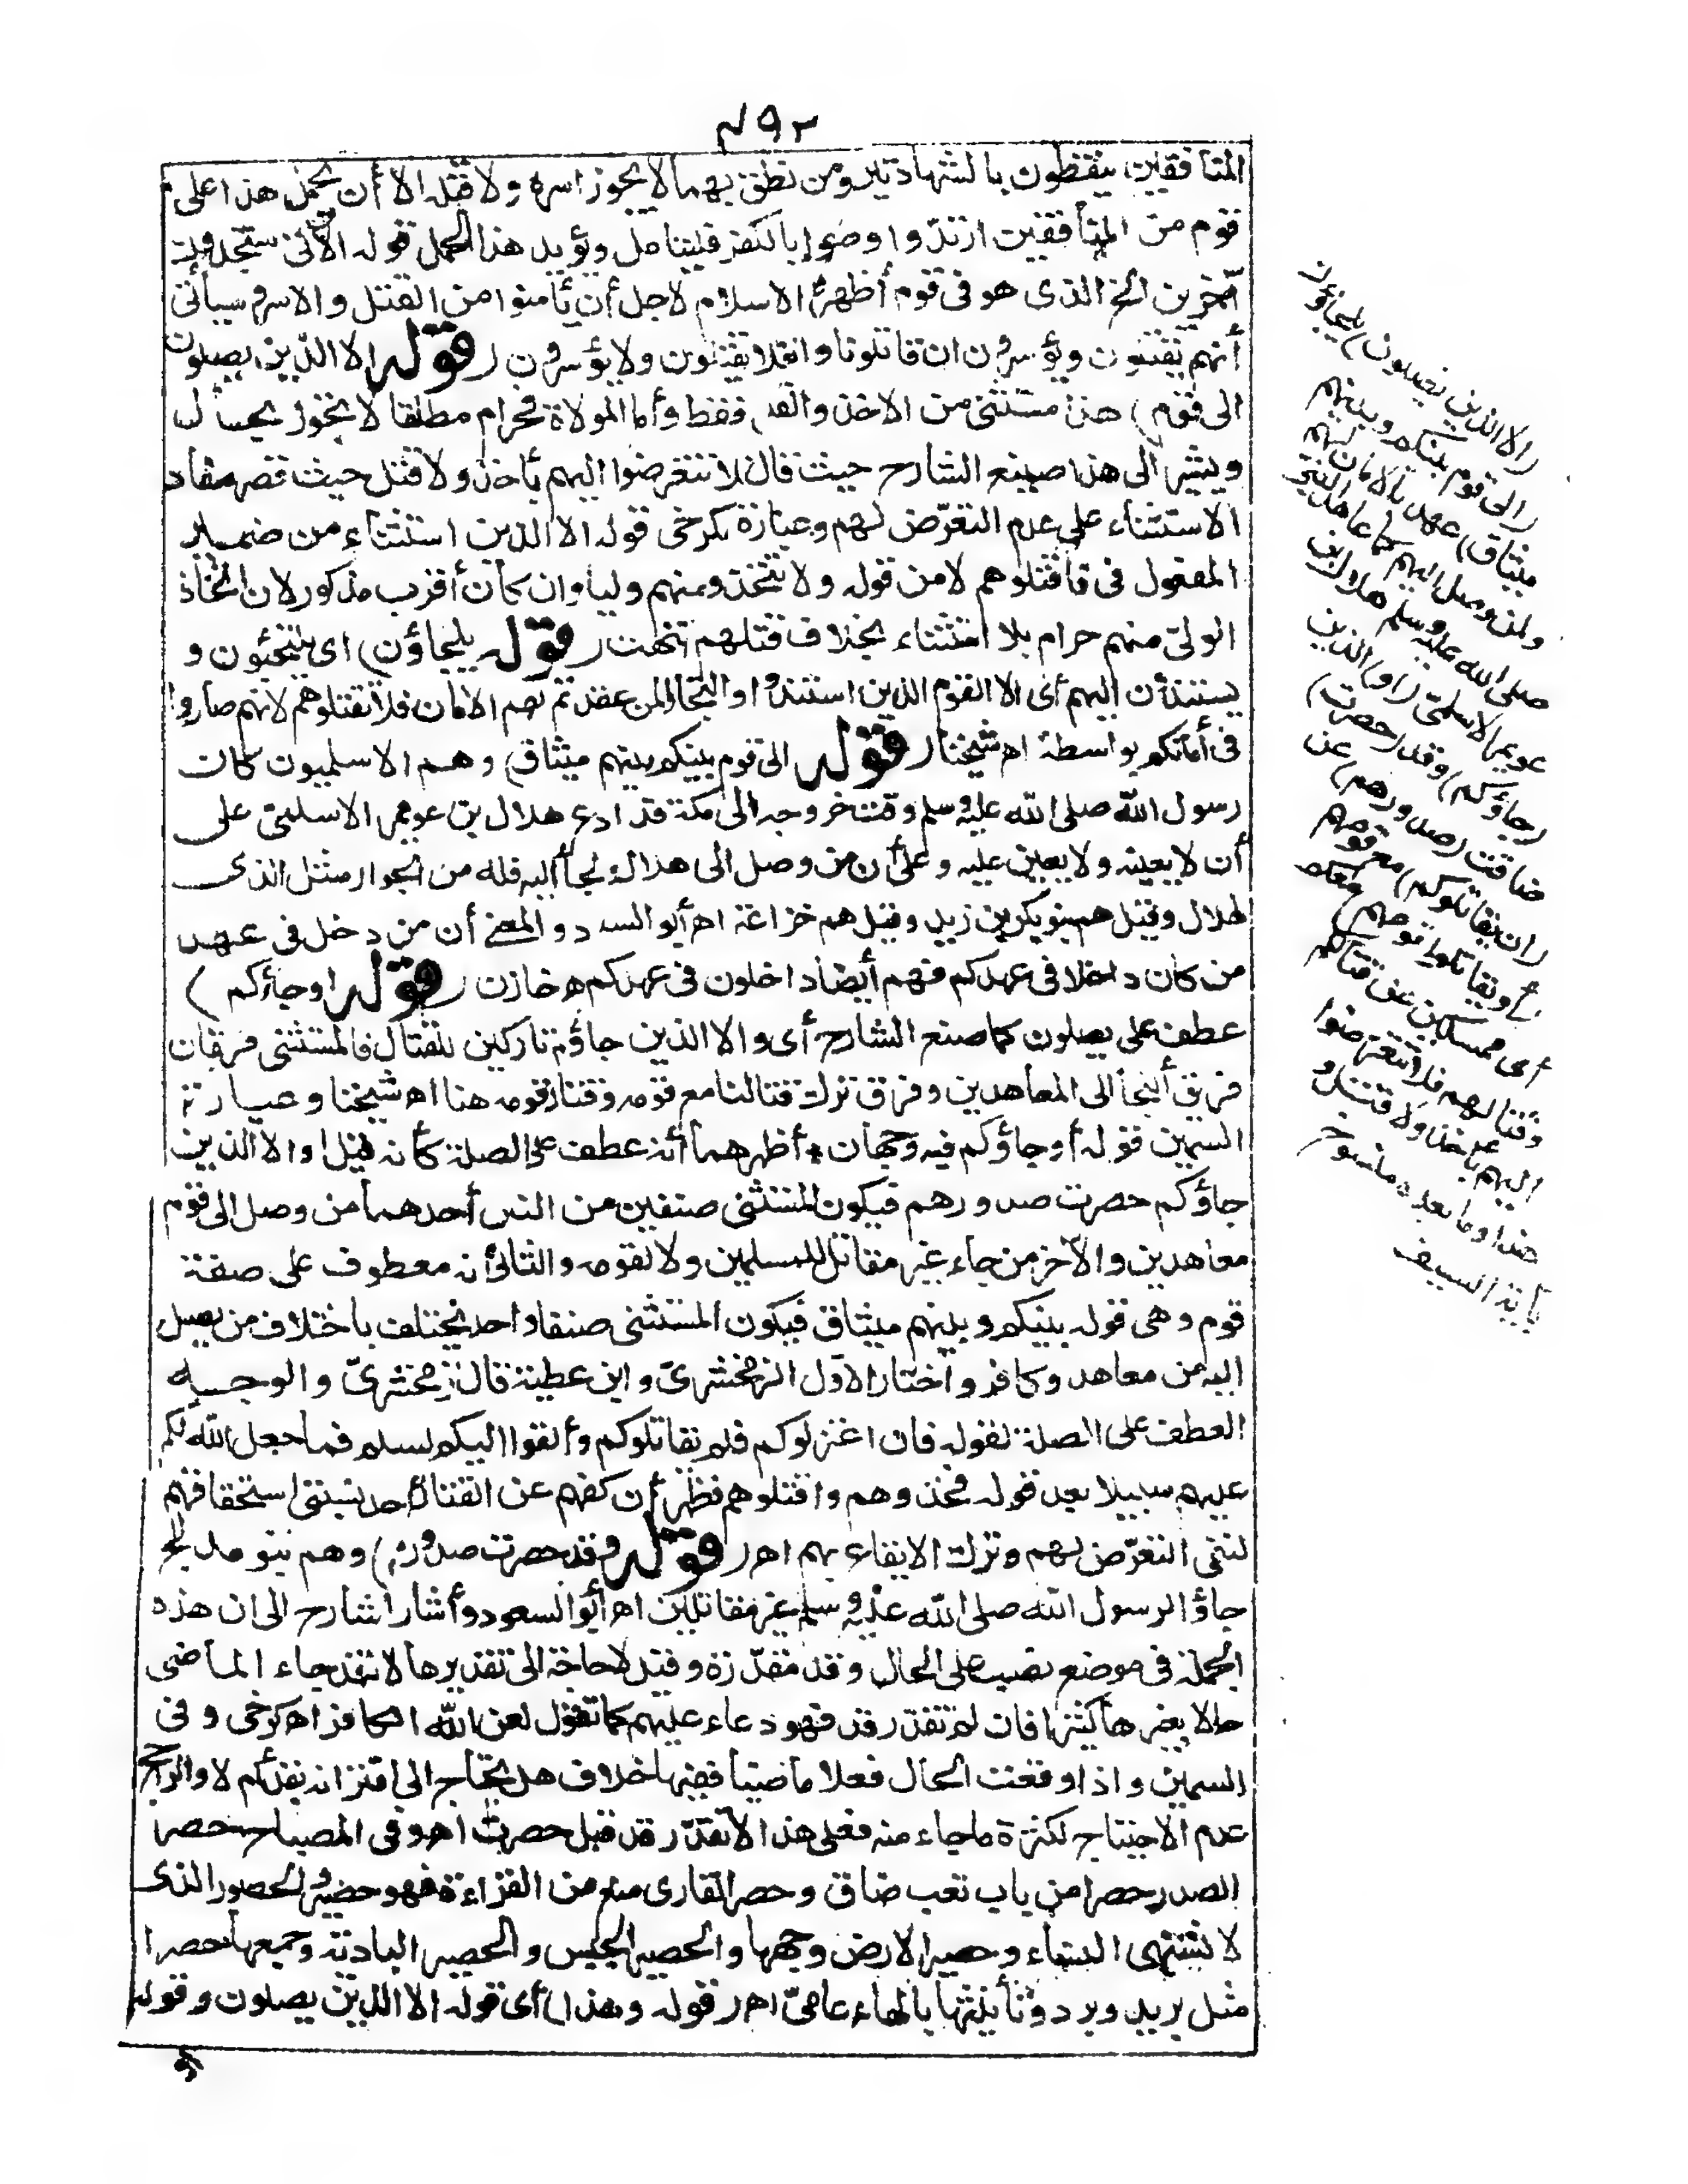 ٤٩٢
المنافقين ينطقون بالشهادتين ومن نطق بهما لا يجوز اسره ولا قتله الا أن يحمل هذا على
قوم من المنافقين ارتدوا وضموا بالكفر فليتامل ويؤيد هذا الحمل قوله الآتى ستجدون
آخرين الخ الذى هو فى قوم أظهروا الاسلام لاجل أن يأمنوا من القتل والاسر وسيأتى
أنهم يقتلون ويؤسرون ان قاتلونا والا فلا يقتلون ولا يؤسرون (قوله الا الذين يصلون
الى قوم) هذا مستثنى من الاخذ والقتل فقط وأما الموالاة فحرام مطلقا لا تجوز بحال
ويشير الى هذا صنيع الشارح حيث قال لا تتعرضوا اليهم بأخذ ولا قتل حيث قصر مفاد
الاستثناء على عدم التعرّض لهم وعبارة كرخى قوله الا الذين استثناء من ضمير
المفعول فى فاقتلوهم لا من قوله ولا تتخذوا منهم وليا وان كان أقرب مذكور لان اتخاذ
الولىّ منهم حرام بلا استثناء بخلاف قتلهم انتهت (قوله يلجاؤن) اى يلتجئون و
يستندون اليهم أى الا القوم الذين استندوا والتجاؤا لمن عقدتم لهم الامان فلا تقتلوهم لانهم صاروا
فى أمانكم بواسطة اه شيخنا (قوله الى قوم بينكم وبينهم ميثاق) وهم الاسلميون كان
رسول الله صلى الله عليه وسلم وقت خروجه الى مكة قد ادع هلال بن عويمر الاسلمىّ على
أن لا يعينه ولا يعين عليه وعلى أن من وصل الى هلال ولجأ اليه فله من الجوار مثل الذى
لهلال وقيل هم بنو بكر بن زيد وقيل هم خزاعة اه أبو السعود والمعنى أن من دخل فى عهد
من كان داخلا فى عهدكم فهم أيضا داخلون فى عهدكم اه خازن (قوله اوجاؤكم)
عطف على يصلون كما صنع الشارح أى والا الذين جاؤكم تاركين للقتال فالمستثنى فريقان
فريق ألتجأ الى المعاهدين وفريق ترك قتالنا مع قومه وقتال قومه هنا اه شيخنا وعبارة
السمين قوله أوجاؤكم فيه وجهان * أظهرهما أنه عطف على الصلة كأنه قيل او الا الذين
جاؤكم حصرت صدورهم فيكون المستثنى صنفين من الناس أحدهما من وصل الى قوم
معاهدين والآخر من جاء غير مقاتل للمسلمين ولا لقومه والثانى أنه معطوف على صفة
قوم وهى قوله بينكم وبينهم ميثاق فيكون المستثنى صنفا واحد يختلف باختلاف من يصل
اليه من معاهد وكافر واختار الاول الزمخشرىّ وابن عطية قال الزمخشرىّ والوجه
العطف على الصلة لقوله فان اعتزلوكم فلم يقاتلوكم وألقوا اليكم السلم فما جعل الله لكم
عليهم سبيلا بعد قوله فخذوهم واقتلوهم فظهر أن كفهم عن القتال أحد سببى استحقاقهم
لنفى التعرّض لهم وترك الايقاع بهم اهر (قوله وقد حصرت صدورهم) وهم بنو مدلج
جاؤا لرسول الله صلى الله عليه وسلم غير مقاتلين اه أبو السعود وأشار الشارح الى ان هذه
الجملة فى موضع نصب على الحال وقد مقدّرة وقيل لا حاجة الى تقديرها لانه قد جاء الماضى
حالا بغيرها كثيرا فان لم تقدر قد فهو دعاء عليهم كما تقول لعن الله الكافر اه كرخى وفى
السمين واذا وقعت الحال فعلا ماضيا ففيها خلاف هل يحتاج الى اقترانه بقد أم لا والراجح
عدم الاحتياج لكثرة ماجاء منه فعلى هذا لا تقدّر قد قبل حصرت اهو فى المصباح حصر
الصدر حصرا من باب تعب ضاق وحصر القارى منع من القراءة فهو حصير والحصور الذى
لا يشتهى النساء وحصير الارض وجهها والحصير الحبس والحصير البادية وجمعها حصر
مثل بريد وبرد وتأنيثها بالهاء عامىّ اهر (قوله وهذا) أى قوله الا الذين يصلون وقوله
(الا الذين يصلون) يلجاؤن
(الى قوم بينكم وبينهم
ميثاق) عهد بالامان لهم
ولمن وصل اليهم كما عاهد النبى
صلى الله عليه وسلم هلال بن
عويمر الاسلمىّ (او) الذين
(جاؤكم) وقد (حصرت)
ضاقت (صدورهم) عن
(ان يقاتلوكم) مع قومهم
(أو يقاتلوا قومهم) معكم
أى ممسكين عن قتالكم
وقتالهم فلا تتعرضوا
اليهم بأخذ ولا قتل و
هذا وما بعده منسوخ
بآية السيف